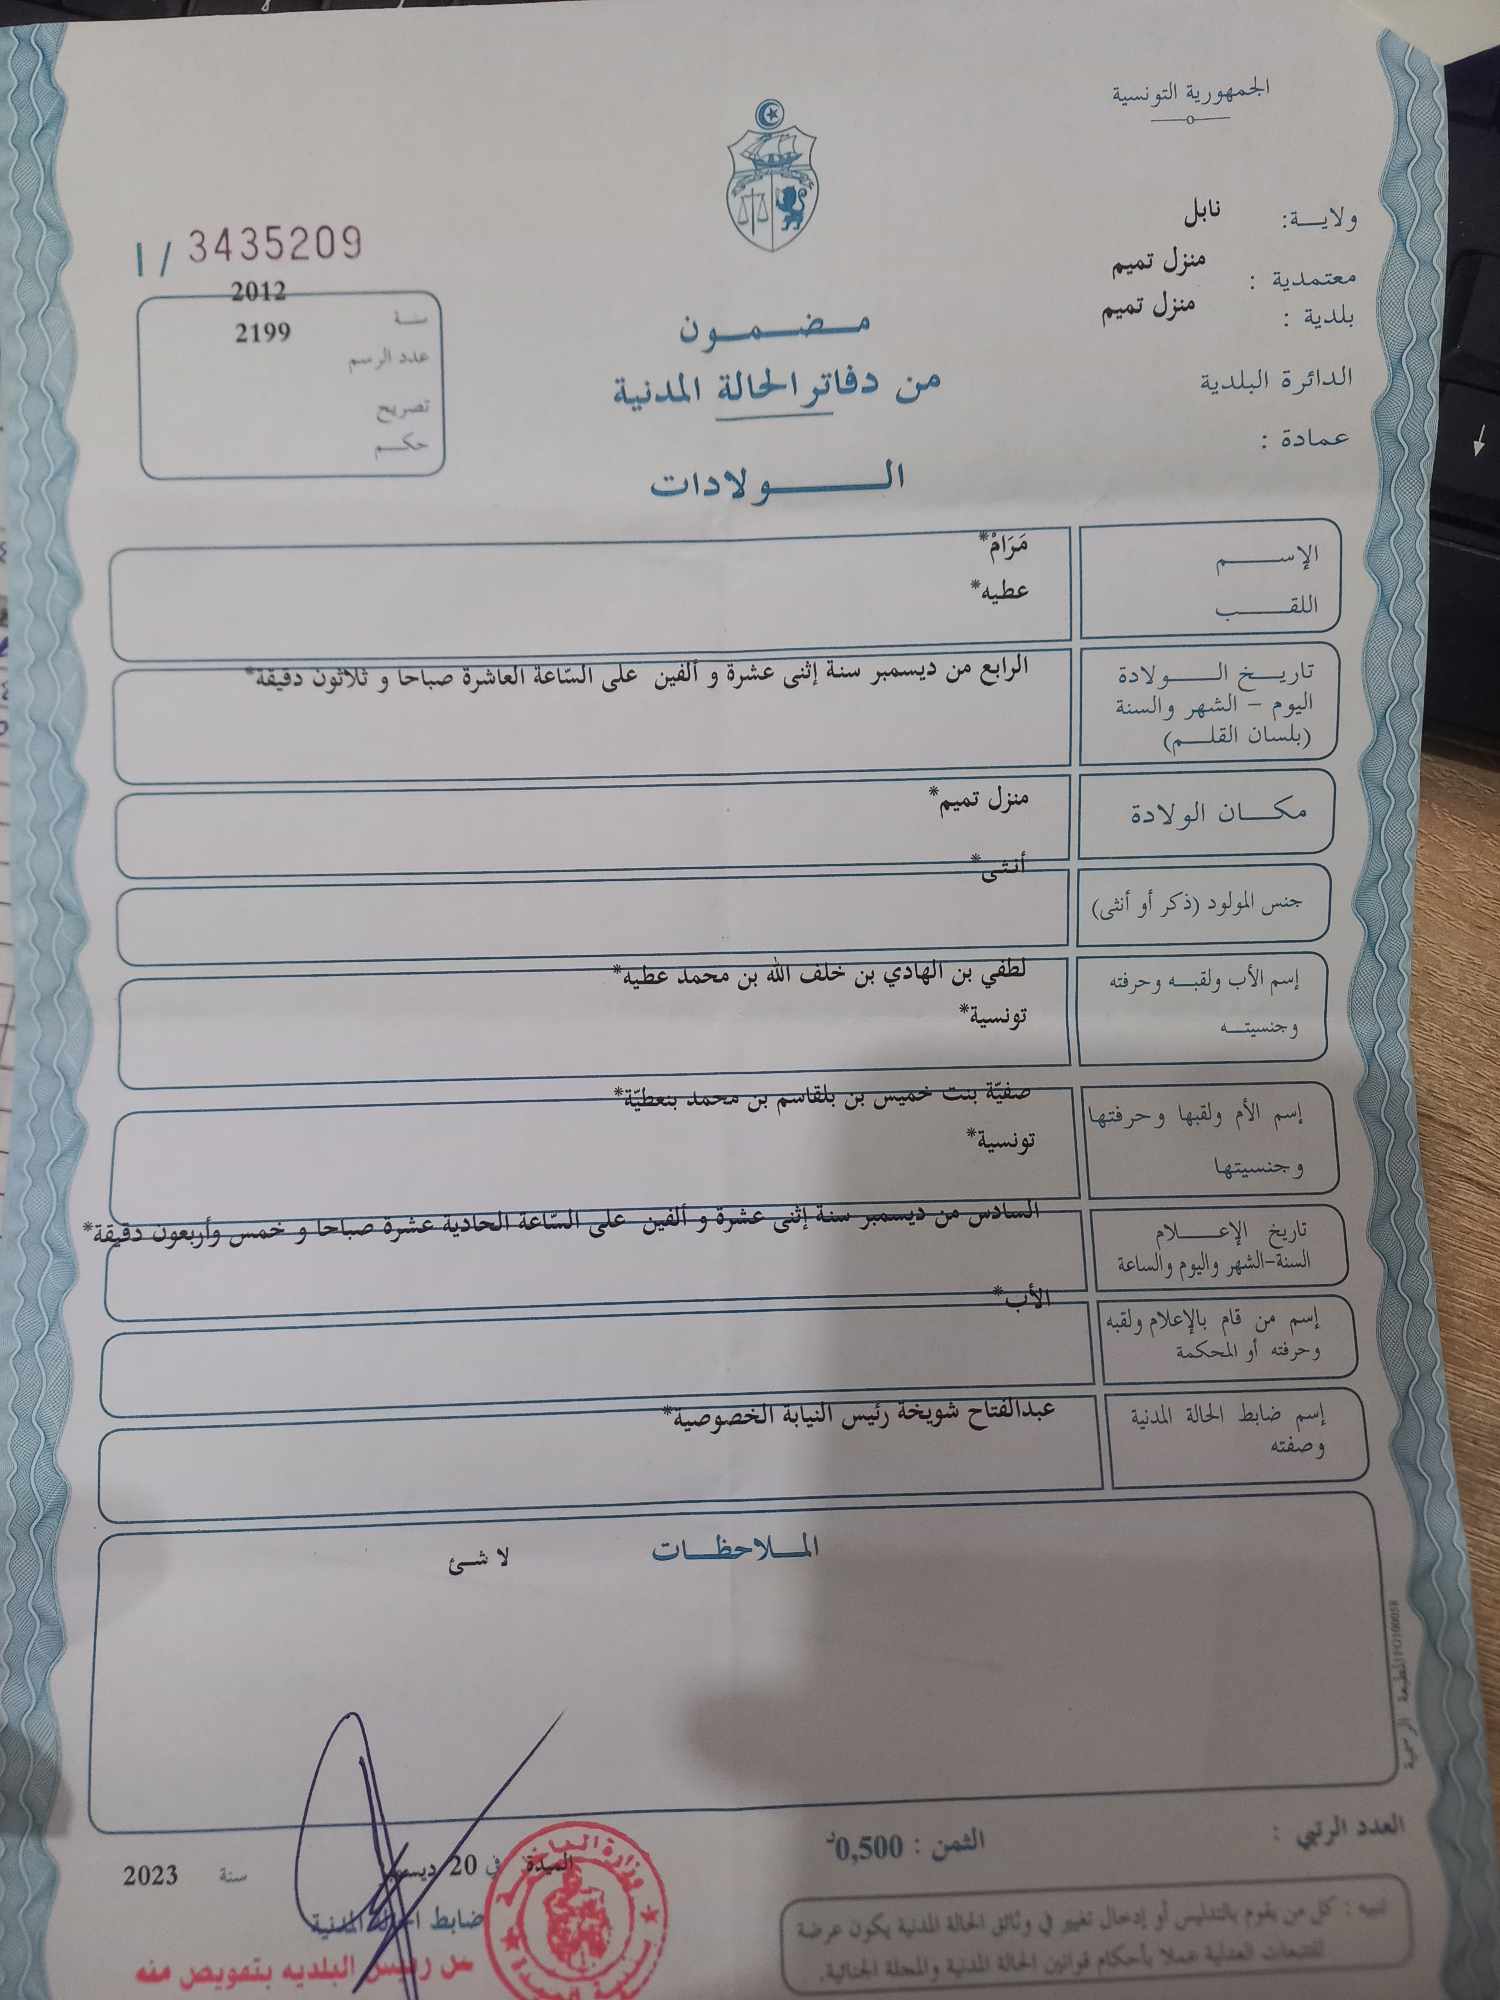 الجمهورية التونسية
ولايـــة: نابل
معتمدية : منزل تميم
بلدية : منزل تميم
الدائرة البلدية
عمادة :
I / 3435209
سنـة 2012
عدد الرسم 2199
تصريح
حكـــم
مـضـمـون
من دفاتر الحالة المدنية
الـــولادات
الإســـــم مَرَامْ*
اللقـــــب عطيه*
تاريـــخ الـــــولادة
اليوم - الشهر والسنة
(بلسان القلـــم)
الرابع من ديسمبر سنة إثنى عشرة و ألفين على السّاعة العاشرة صباحا و ثلاثون دقيقة*
مكـــان الولادة
منزل تميم*
جنس المولود (ذكر أو أنثى)
أنثى*
إسم الأب ولقبـــه وحرفته
وجنسيتـــه
لطفي بن الهادي بن خلف الله بن محمد عطيه*
تونسية*
إسم الأم ولقبها وحرفتها
وجنسيتها
صفيّة بنت خميس بن بلقاسم بن محمد بنعطيّة*
تونسية*
تاريخ الإعـــــلام
السنة-الشهر واليوم والساعة
السادس من ديسمبر سنة إثنى عشرة و ألفين على السّاعة الحادية عشرة صباحا و خمس وأربعون دقيقة*
إسم من قام بالإعلام ولقبه
وحرفته أو المحكمة
الأب*
إسم ضابط الحالة المدنية
وصفته
عبدالفتاح شويخة رئيس النيابة الخصوصية*
المـــلاحظـــات
لا شئ
المطبعة الرسمية
العدد الرتبي :
الثمن : 0,500د
الميدة في 20 ديسمبر سنة 2023
ضابط الحالة المدنية
رئيس البلديه بتفويض منه
تنبيه : كل من يقوم بالتدليس أو إدخال تغيير في وثائق الحالة المدنية يكون عرضة
للتتبعات العدلية عملا بأحكام قوانين الحالة المدنية والمجلة الجنائية.